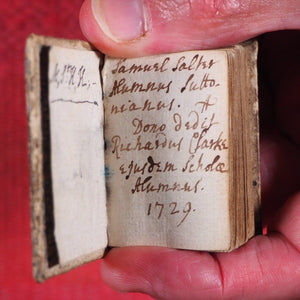 Samuel Salter
Alumnus Sutto-
nianus. A
Dono dedit
Richardus Clarke
ejusdem Scholæ
Alumnus.
1729.